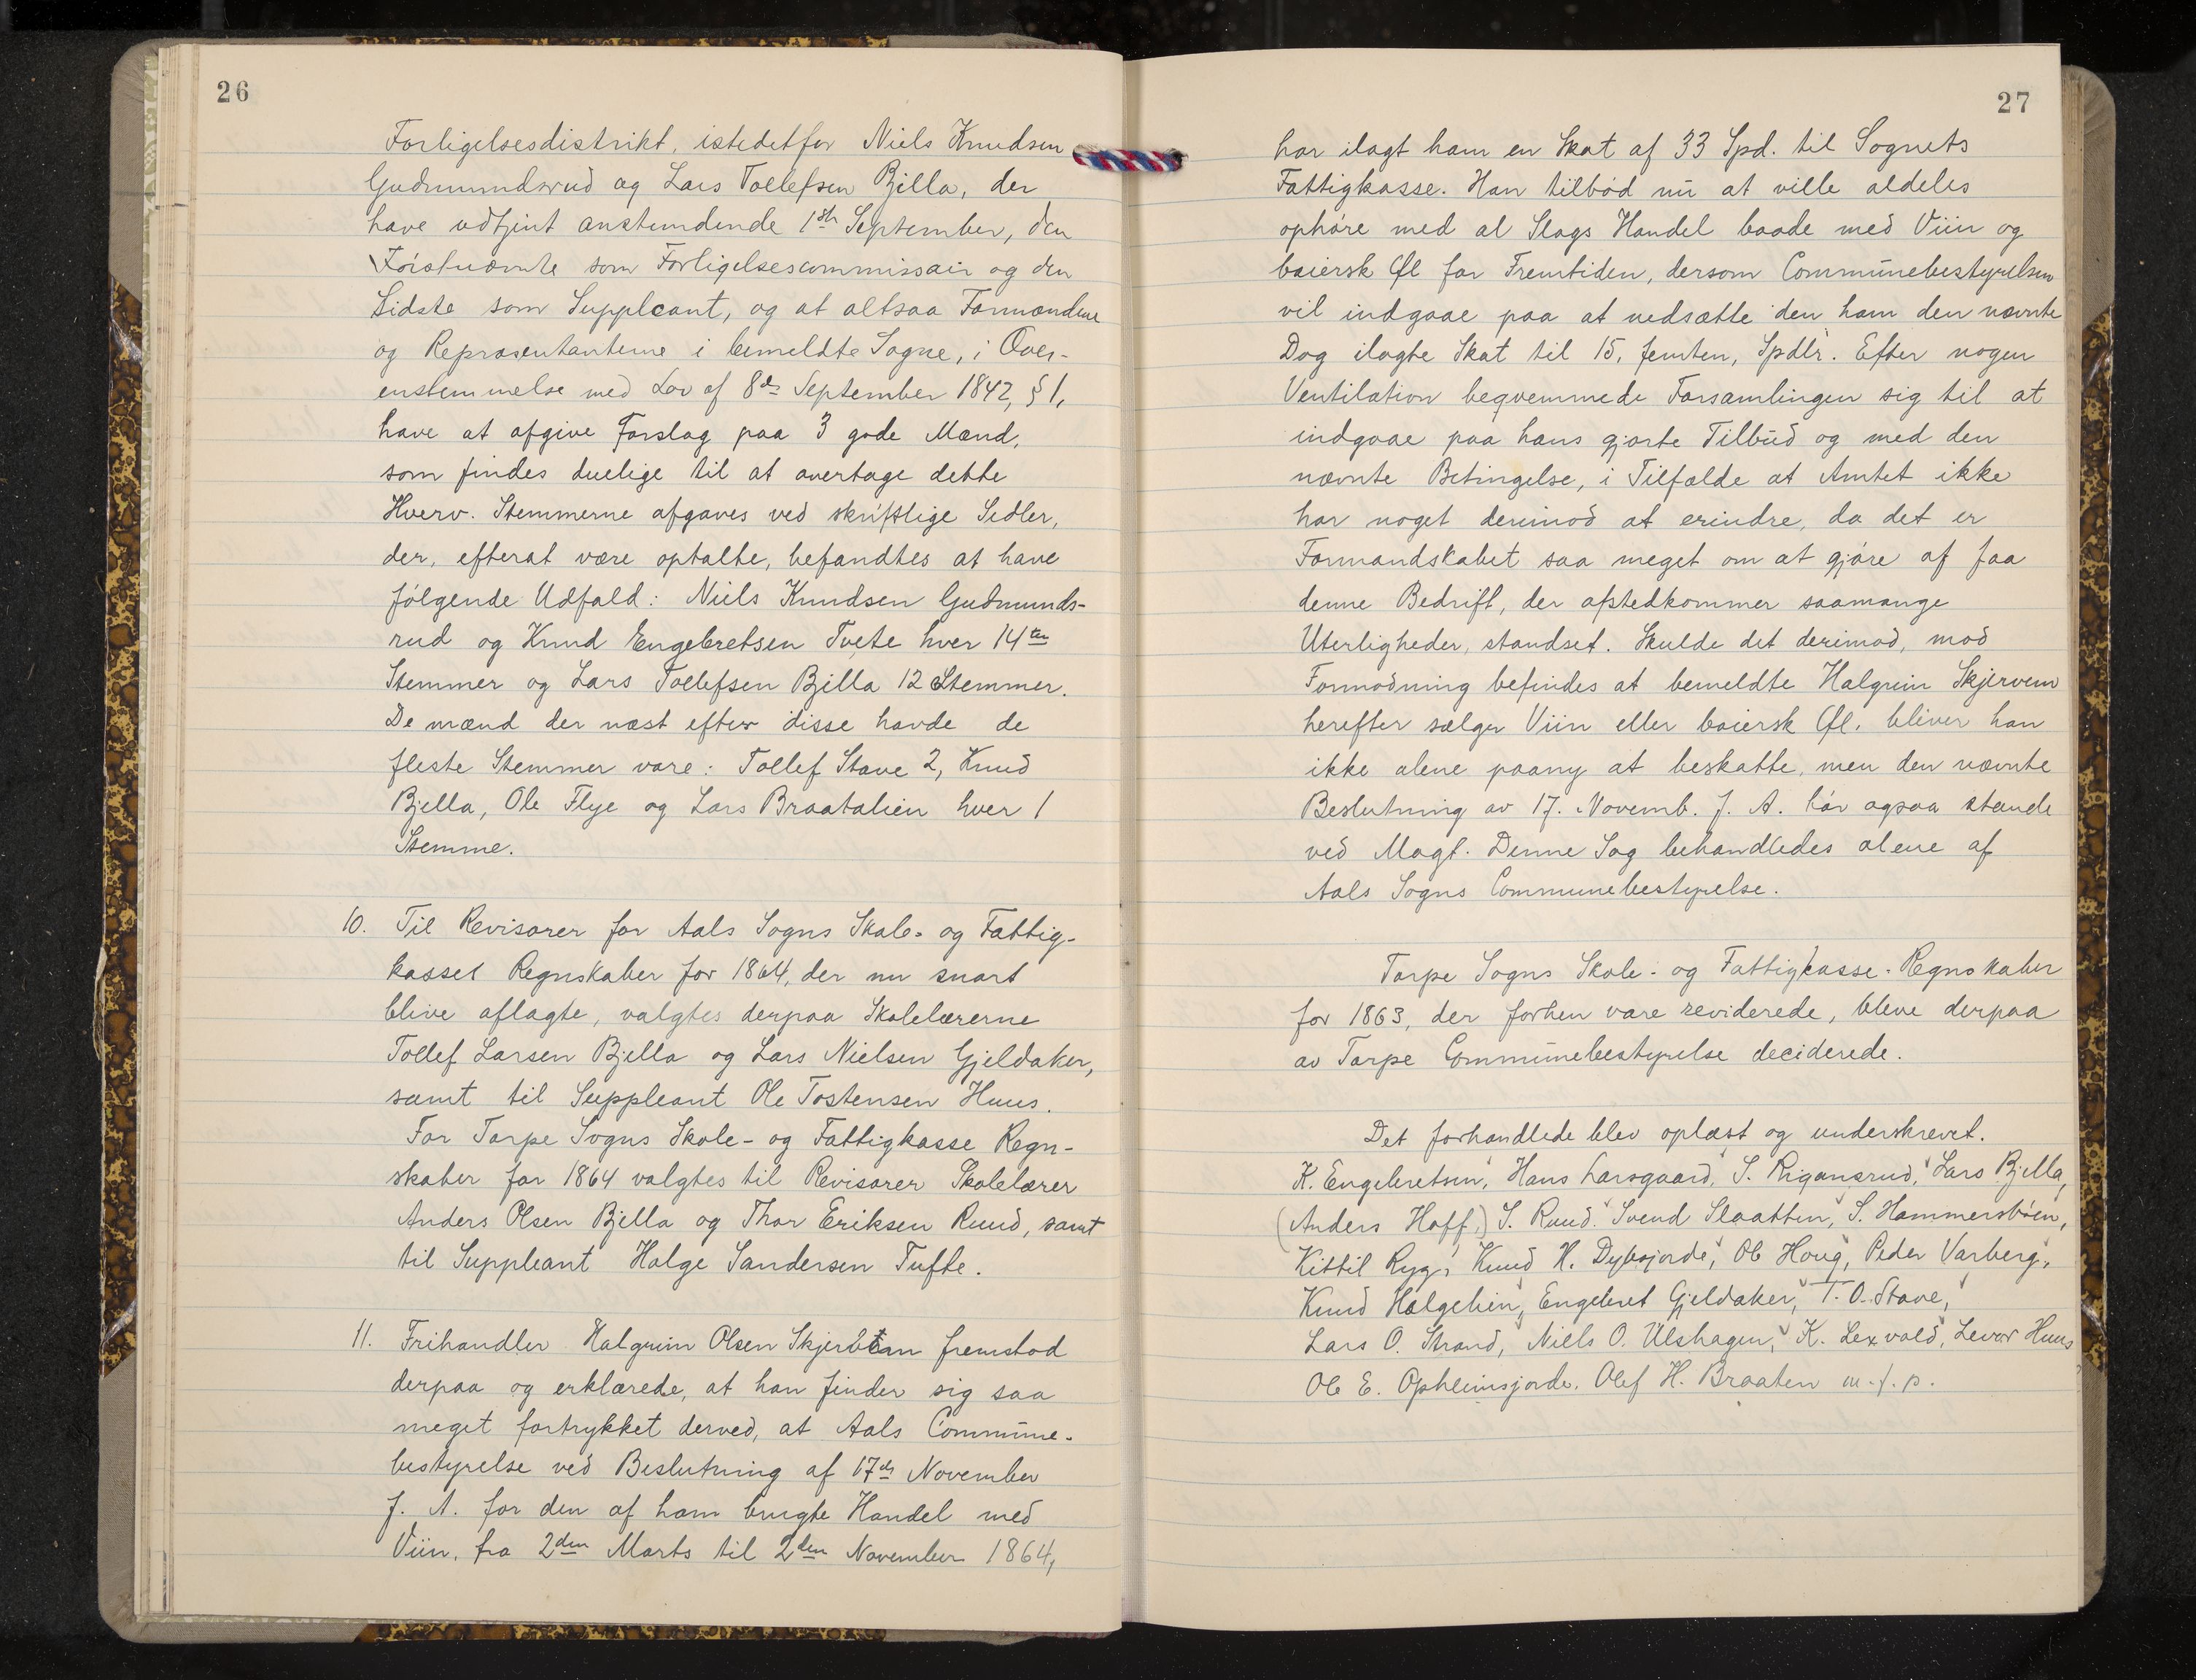 26
Forligelsesdistrikt, istedetfor Niels Knudsen
Gudmundsrud og Lars Tollefsen Bjella, der
have udtjent anstundende 1ste September, den
Førstnævnte som Forligelsescommissair og den
Sidste som Suppleant, og at altsaa Formændene
og Repræsentanterne i bemeldte Sogne, i Over-
enstemmelse med Lov af 8de September 1842, § 1,
have at afgive Forslag paa 3 gode Mænd,
som findes duelige til at overtage dette
Hverv. Stemmerne afgaves ved skriftlige Sedler,
der, efterat være optalte, befandtes at have
følgende Udfald: Niels Knudsen Gudmunds-
rud og Knud Engebretsen Tvete hver 14ten
Stemmer og Lars Tollefsen Bjella 12 Stemmer.
De mænd der næst efter disse havde de
fleste Stemmer vare: Tollef Stave 2, Knud
Bjella, Ole Flye og Lars Braatalien hver 1
Stemme.
10. Til Revisorer for Aals Sogns Skole- og Fattig-
kasses Regnskaber for 1864, der nu snart
blive aflagte, valgtes derpaa Skolelærerne
Tollef Larsen Bjella og Lars Nielsen Gjeldaker,
samt til Suppleant Ole Tostensen Huus.
For Torpe Sogns Skole- og Fattigkasse Regn-
skaber for 1864 valgtes til Revisorer Skolelærer
Anders Olsen Bjella og Thor Eriksen Ruud, samt
til Suppleant Holge Sandersen Tufte.
11. Frihandler Halgrim Olsen fremstod
derpaa og erklærede, at han finder sig saa
meget fortrykket derved, at Aals Commune-
bestyrelse ved Beslutning af 17de November
f. A. for den af ham brugte Handel med
Viin, fra 2den Marts til 2den November 1864,
27
har ilagt ham en Skat af 33 Spd. til Sognets
Fattigkasse. Han tilbød nu at ville aldeles
ophøre med al Slags Handel baade med Viin og
baiersk Øl for Fremtiden, dersom Communebestyrelsen
vil indgaae paa at nedsætte den ham den nævnte
Dag ilagte Skat til 15, femten, Spdlr. Efter nogen
Ventilation beqvemmede Forsamlingen sig til at
indgaae paa hans gjorte Tilbud og med den
nævnte Betingelse, i Tilfælde at Amtet ikke
har noget derimod at erindre, da det er
Formandskabet saa meget om at gjøre af faa
denne Bedrift, der afstedkommer saamange
Uterligheder, standset. Skulde det derimod, mod
Formodning befindes at bemeldte Halgrim Skjervem
herefter sælger Viin eller baiersk Øl, bliver han
ikke alene paany at beskatte, men den nævnte
Beslutning av 17. Novemb. f. A. bør ogsaa staaende
ved Magt. Denne Sag behandledes alene af
Aals Sogns Communebestyrelse.
Torpe Sogns Skole- og Fattigkasse-Regnskaber
for 1863, der forhen vare reviderede, bleve derpaa
av Torpe Communebestyrelse deciderede.
Det forhandlede blev oplæst og underskrevet.
K. Engebretsen, Hans Larsgaard, S. Rigansrud, Lars Bjella,
(Anders Hoff,) S. Ruud. Svend Slaatten, S. Hammersbøen,
Kittil Ryg, Knud H. Dybsjorde, Ole Houg, Peder Varberg,
Knud Halgelien, Engebret Gjeldaker, T. O. Stave,
Lars O. Strand, Niels O. Ulshagen, K. Lexvold, Levor Huus
Ole E. Opheimsjorde. Olef H. Braaten m. f. p.